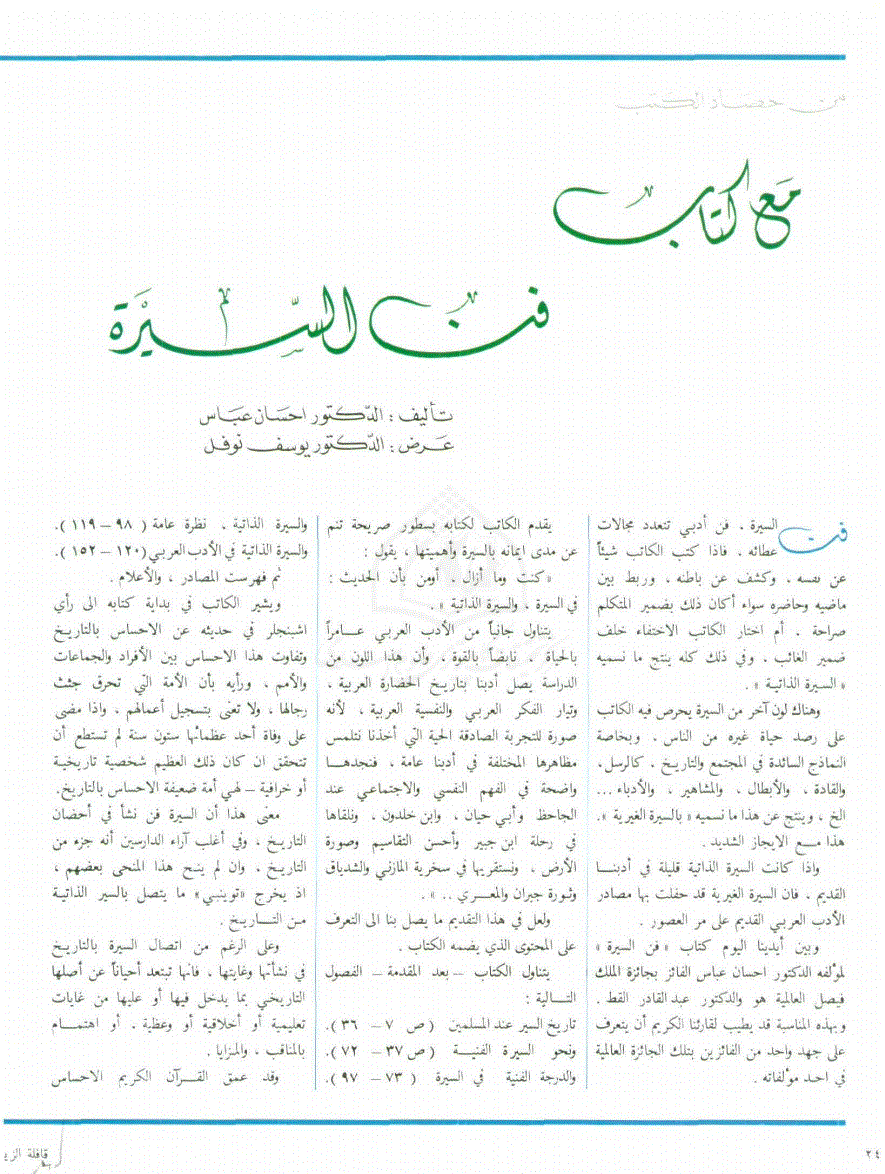 من حصاد الكتب
مع كتاب
فن السيرة
تأليف : الدكتور احسان عباس
عرض : الدكتور يوسف نوفل
فن السيرة ، فن أدبي تتعدد مجالات
عطائه ، فاذا كتب الكاتب شيئاً
عن نفسه ، وكشف عن باطنه ، وربط بين
ماضيه وحاضره سواء أكان ذلك بضمير المتكلم
صراحة ، أم اختار الكاتب الاختفاء خلف
ضمير الغائب ، وفي ذلك كله ينتج ما نسميه
« السيرة الذاتية » .
وهناك لون آخر من السيرة يحرص فيه الكاتب
على رصد حياة غيره من الناس ، وبخاصة
النماذج السائدة في المجتمع والتاريخ ، كالرسل،
والقادة ، والأبطال ، والمشاهير ، والأدباء ...
الخ ، وينتج عن هذا ما نسميه « بالسيرة الغيرية ».
هذا مع الايجاز الشديد .
واذا كانت السيرة الذاتية قليلة في أدبنا
القديم ، فان السيرة الغيرية قد حفلت بها مصادر
الأدب العربي القديم على مر العصور .
وبين أيدينا اليوم كتاب « فن السيرة »
لمؤلفه الدكتور احسان عباس الفائز بجائزة الملك
فيصل العالمية هو والدكتور عبد القادر القط .
وبهذه المناسبة قد يطيب لقارئنا الكريم أن يتعرف
على جهد واحد من الفائزين بتلك الجائزة العالمية
في احد مؤلفاته .
يقدم الكاتب لكتابه بسطور صريحة تنم
عن مدى ايمانه بالسيرة وأهميتها ، يقول :
« كنت وما أزال ، أومن بأن الحديث :
في السيرة ، والسيرة الذاتية » .
يتناول جانباً من الأدب العربي عامراً
بالحياة ، نابضاً بالقوة ، وأن هذا اللون من
الدراسة يصل أدبنا بتاريخ الحضارة العربية ،
وتيار الفكر العربي والنفسية العربية ، لأنه
صورة للتجربة الصادقة الحية التي أخذنا نتلمس
مظاهرها المختلفة في أدبنا عامة ، فنجدها
واضحة في الفهم النفسي والاجتماعي عند
الجاحظ وأبي حيان ، وابن خلدون ، ونلقاها
في رحلة ابن جبير وأحسن التقاسيم وصورة
الأرض ، ونستقريها في سخرية المازني والشدياق
وثورة جبران والمعري .. » .
ولعل في هذا التقديم ما يصل بنا الى التعرف
على المحتوى الذي يضمه الكتاب .
يتناول الكتاب – بعد المقدمة – الفصول
التالية :
تاريخ السير عند المسلمين ( ص ٧ – ٣٦ ).
ونحو السيرة الفنية ( ص ٣٧ – ٧٢ ).
والدرجة الفنية في السيرة ( ٧٣ – ٩٧ ).
والسيرة الذاتية ، نظرة عامة ( ٩٨ – ١١٩ ).
والسيرة الذاتية في الأدب العربي (١٢٠ – ١٥٢ ).
ثم فهرست المصادر ، والأعلام .
ويشير الكاتب في بداية كتابه الى رأي
اشبنجلر في حديثه عن الاحساس بالتاريخ
وتفاوت هذا الاحساس بين الأفراد والجماعات
والأمم ، ورأيه بأن الأمة التي تحرق جثث
رجالها ، ولا تعنى بتسجيل أعمالهم ، واذا مضى
على وفاة أحد عظمائها ستون سنة لم تستطع أن
تتحقق ان كان ذلك العظيم شخصية تاريخية
أو خرافية – لهي أمة ضعيفة الاحساس بالتاريخ.
معنى هذا أن السيرة فن نشأ في أحضان
التاريخ ، وفي أغلب آراء الدارسين أنه جزء من
التاريخ ، وان لم ينح هذا المنحى بعضهم ،
اذ يخرج «توينبي» ما يتصل بالسير الذاتية
من التاريخ .
وعلى الرغم من اتصال السيرة بالتاريخ
في نشأتها وغايتها ، فانها تبتعد أحياناً عن أصلها
التاريخي بما يدخل فيها أو عليها من غايات
تعليمية أو أخلاقية أو وعظية ، أو اهتمام
بالمناقب ، والمزايا .
وقد عمق القرآن الكريم الاحساس
٢٤
قافلة الزيت